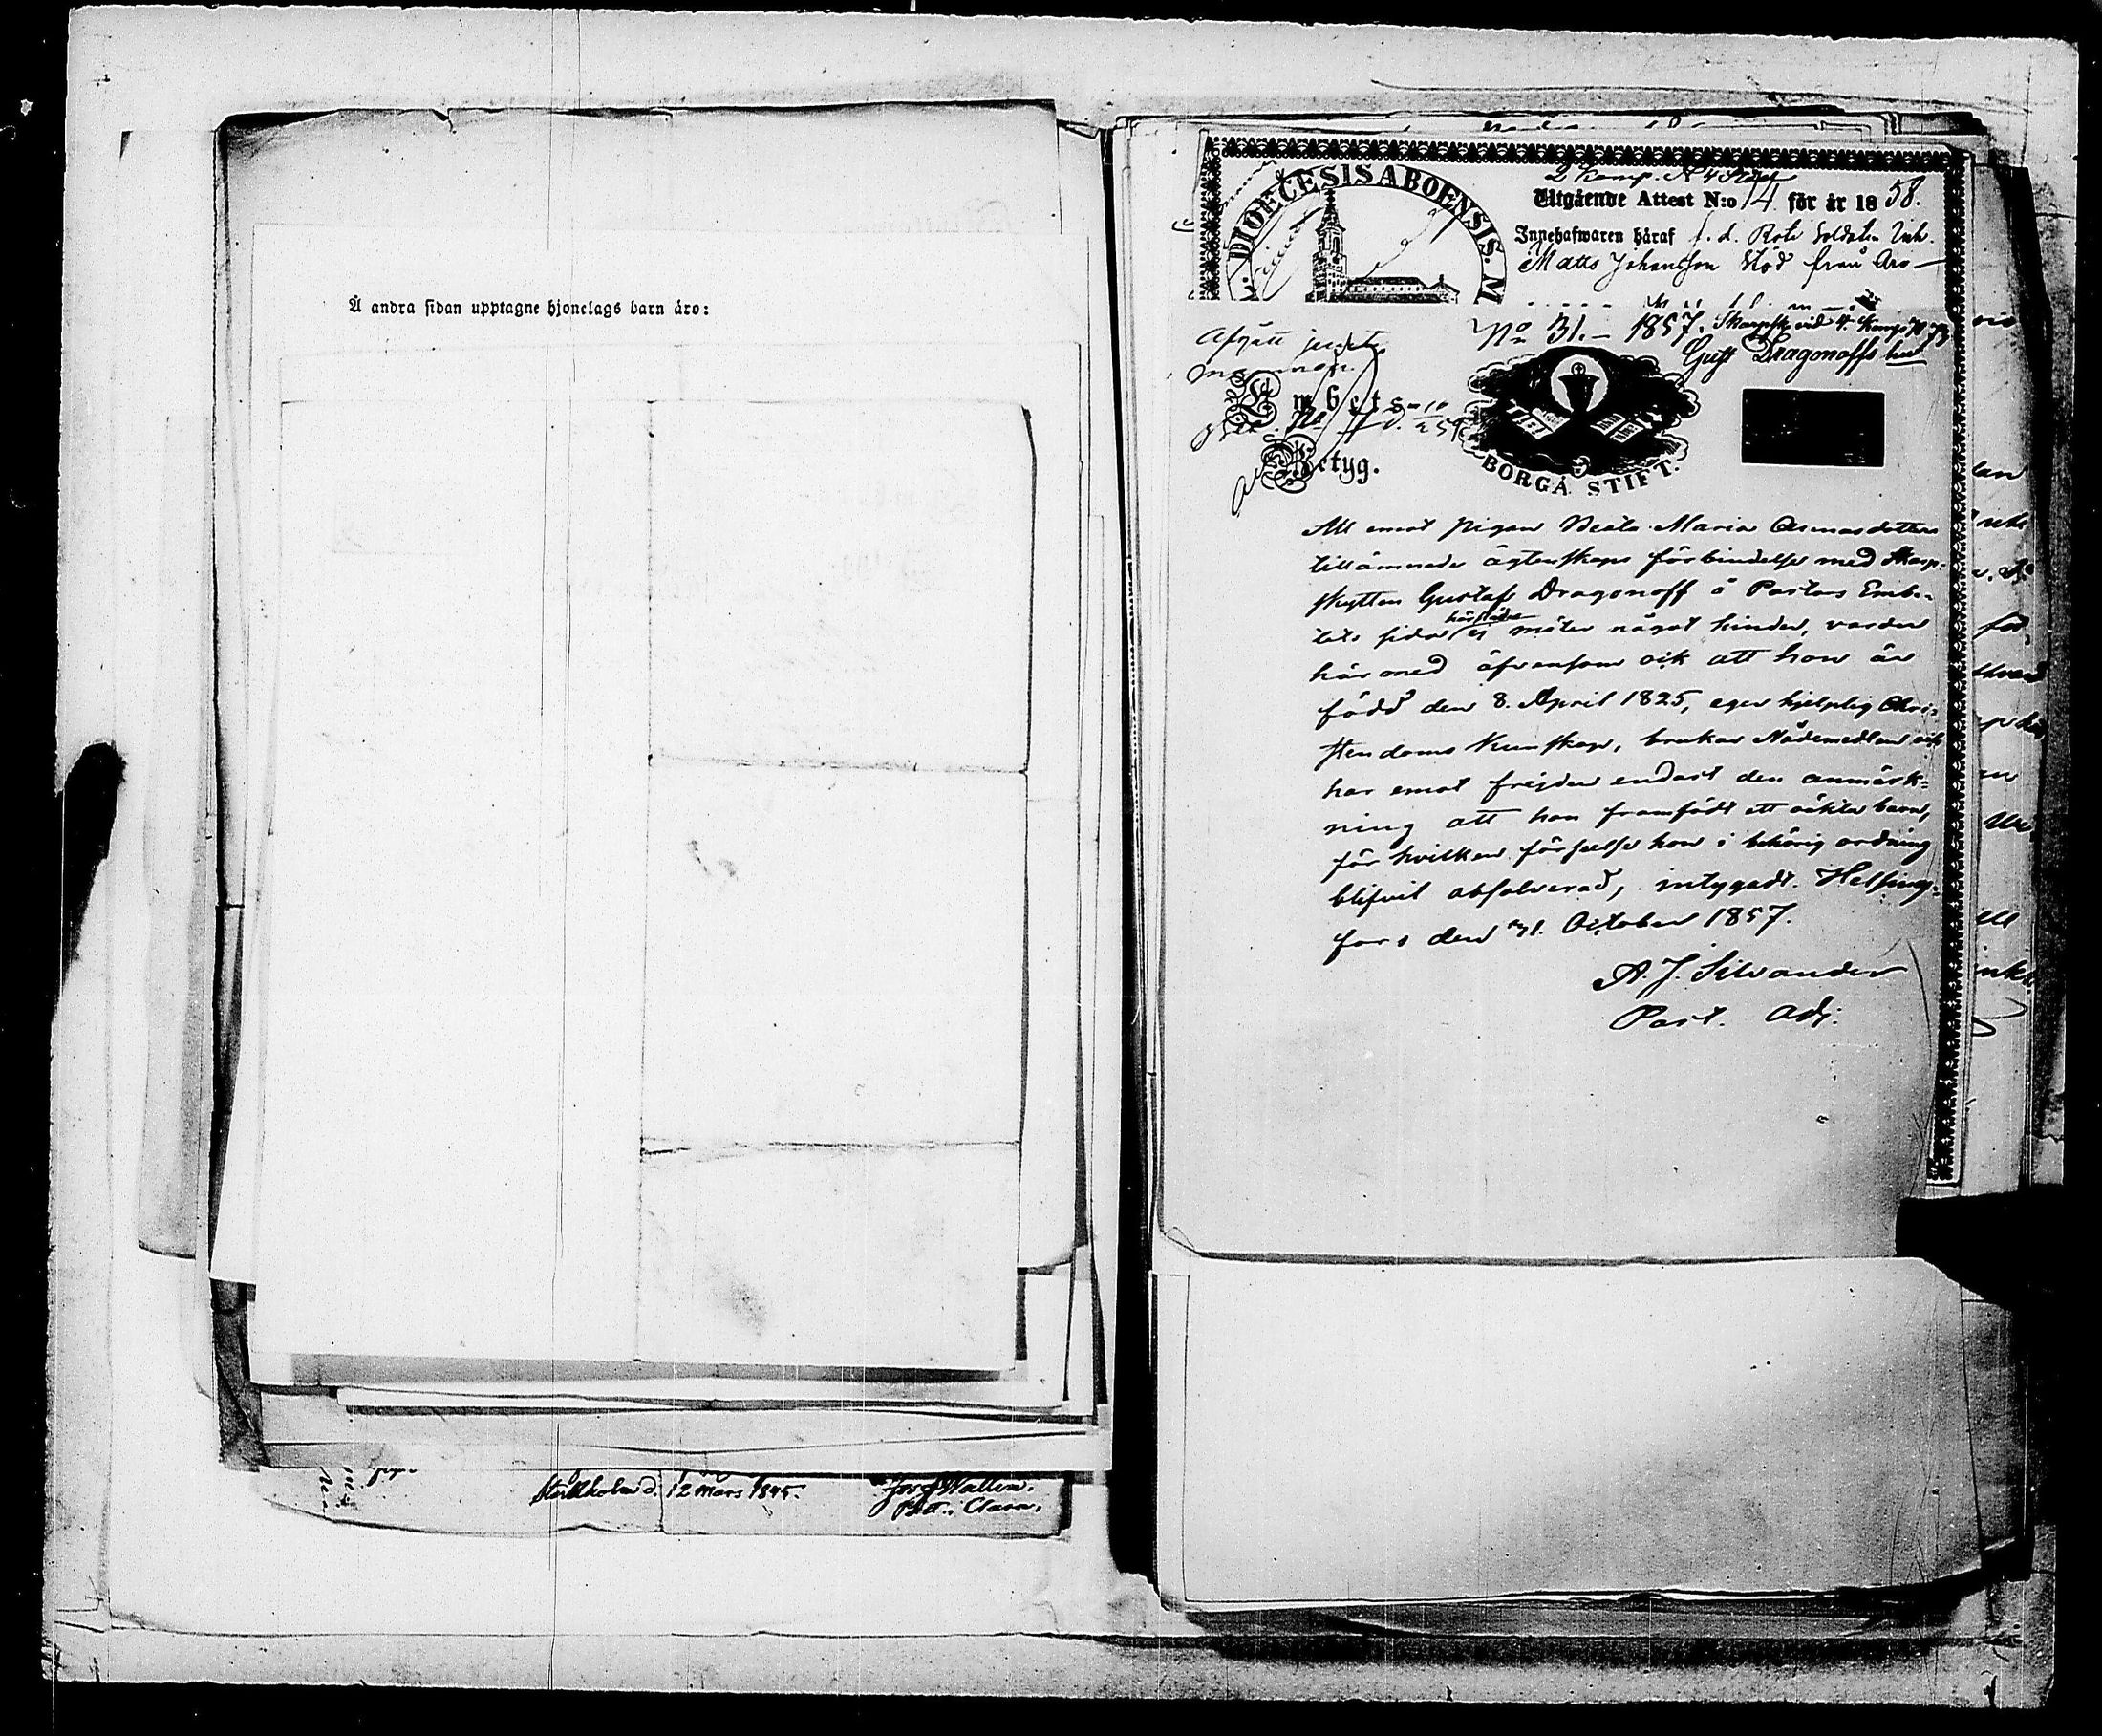 Å andra sidan upptagne hjonelags barn äro:
Stockholm d. 12 Mars 1845.
Josef Wallin.
Past. i Clara.
DIOECESIS ABOENSIS. M
2 Komp. N 4
Utgående Attest N:o 14 för år 1858.
Innehafwaren häraf f. d. Rote Soldaten
Matts Johansson Stöd från
No 31. — 1857. Skarpsk. vid 4. Komp. No 73
Gust Dragonoffs hust
Afgått
Embets-
Betyg.
BORGÅ STIFT.
Att emot pigan Beata Maria Asmusdotters
tillämnade ägtenskaps förbindelse med Skarp-
skytten Gustaf Dragonoff å Pastors Embe-
tets sida härstädes ej möter något hinder, varder
härmed äfvensom ock att hon är
född den 8. April 1825, eger hjelplig Chri-
stendoms kunskap, brukar Nådemedlen och
har emot frejden endast den anmärk-
ning att hon framfödt ett oäkta barn,
för hvilken förseelse hon i behörig ordning
blifvit absolverad, intygadt. Helsing-
fors den 31. October 1857.
A. J. Silvander
Past. Adj.